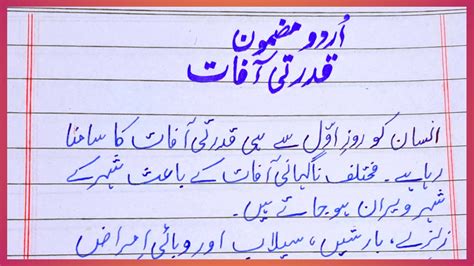 اُردو مضمون
قدرتی آفات
انسان کو روزِ اوّل سے ہی قدرتی آفات کا سامنا
رہا ہے۔ مختلف ناگہانی آفات کے باعث شہر کے
شہر ویران ہو جاتے ہیں۔
زلزلے، بارشیں، سیلاب اور وبائی امراض